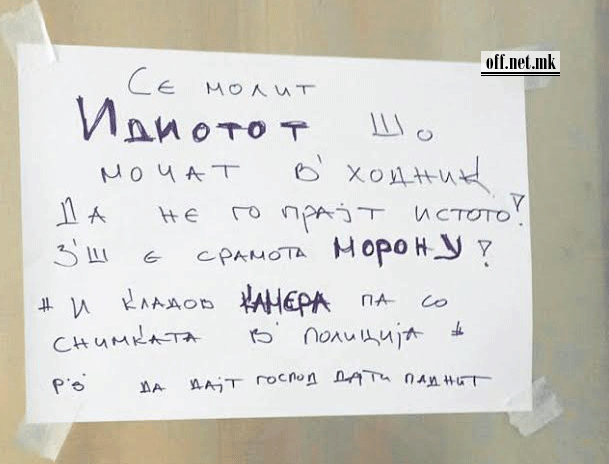 off.net.mk
СЕ МОЛИТ
ИДИОТОТ ШО
МОЧАТ В' ХОДНИК
ДА НЕ ГО ПРАЈТ ИСТОТО!
З'Ш Е СРАМОТА МОРОНУ?
# И КЛАДОВ КАМЕРА ПА СО
СНИМКАТА В' ПОЛИЦИЈА #
P.S' ДА ДАЈТ ГОСПОД ДАТИ ПАДНИТ